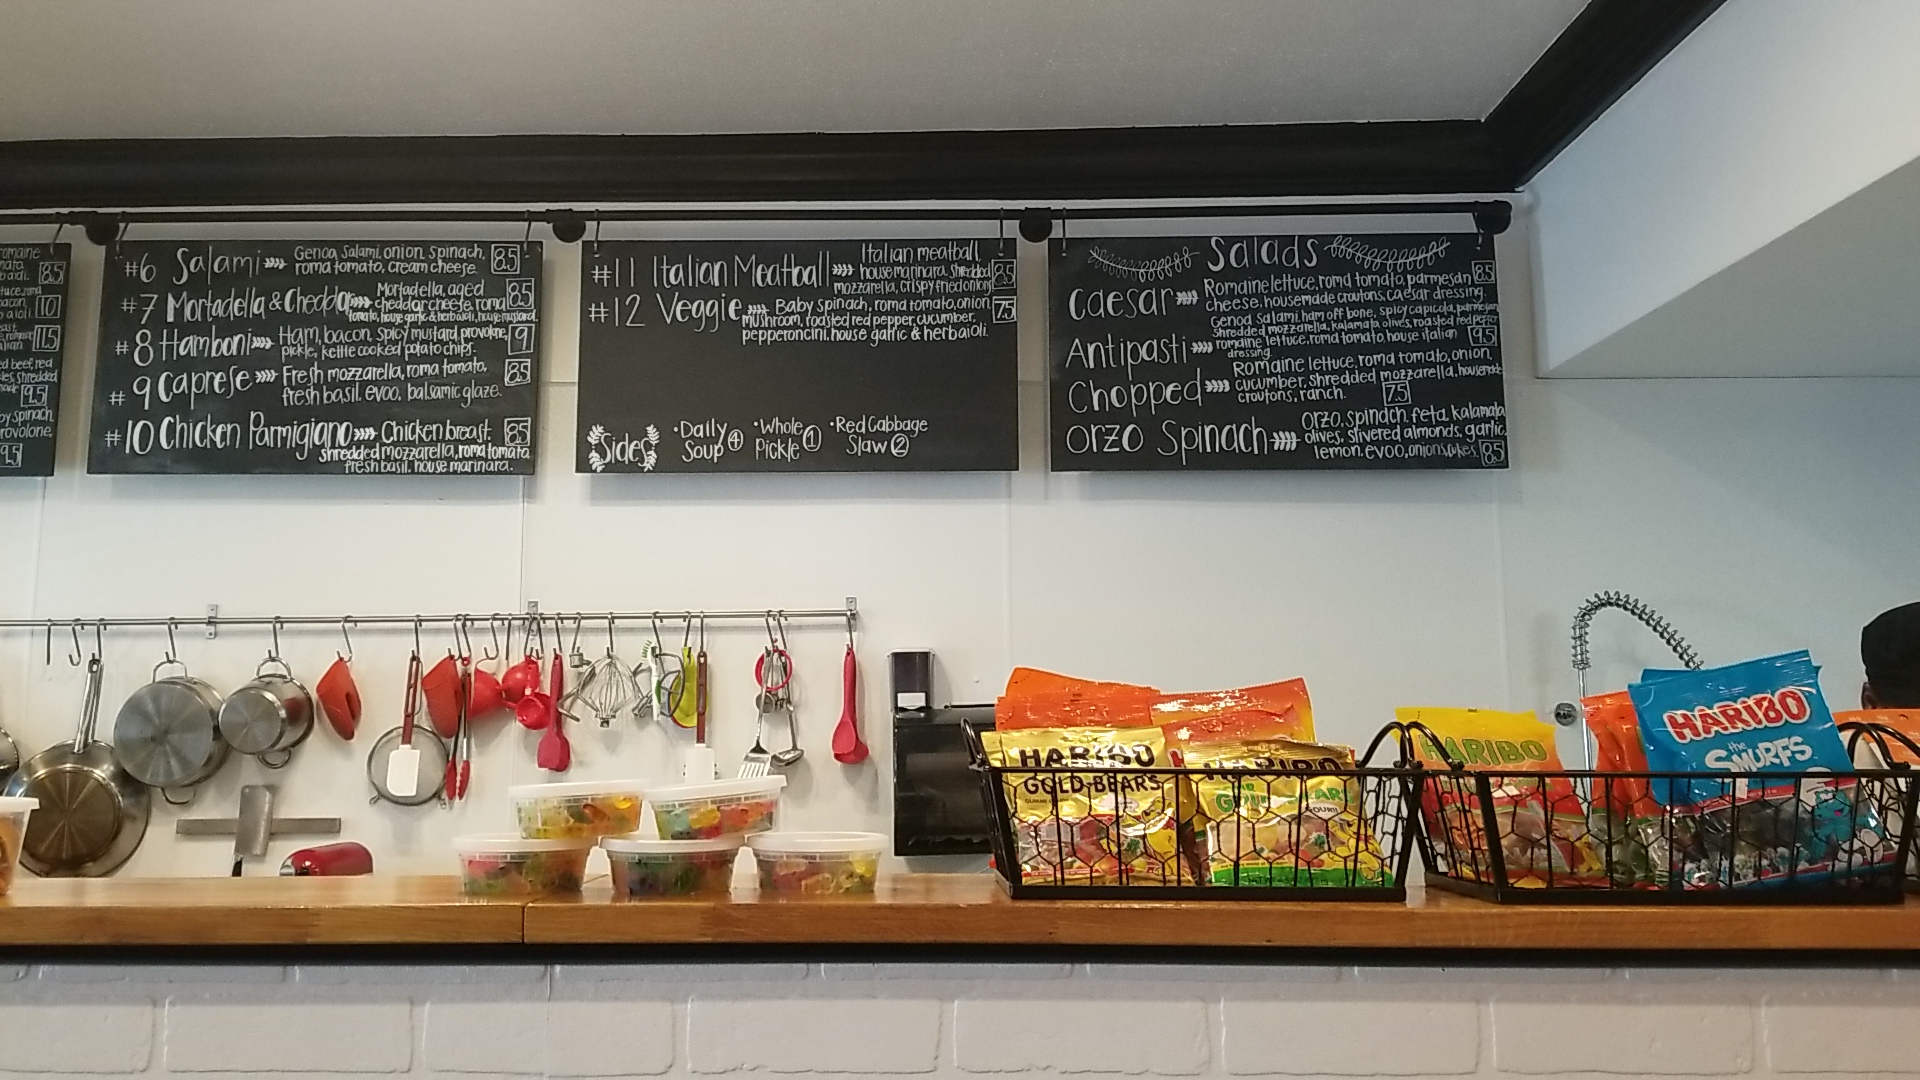 8.5
10
11.5
9.5
9.5
#6 Salami Genoa Salami, onion, spinach, 8.5
roma tomato, cream cheese.
#7 Mortadella & Cheddar Mortadella, aged 8.5
cheddar cheese, roma
tomato, house garlic & herb aioli, house mustard.
#8 Hamboni Ham, bacon, spicy mustard, provolone, 9
pickle, kettle cooked potato chips.
#9 Caprese Fresh mozzarella, roma tomato, 8.5
fresh basil, evoo, balsamic glaze.
#10 Chicken Parmigiano Chicken breast, 8.5
shredded mozzarella, roma tomato
fresh basil, house marinara.
#11 Italian Meatball Italian meatball, 8.5
house marinara, shredded
mozzarella, crispy fried onions
#12 Veggie Baby spinach, roma tomato, onion, 7.5
mushroom, roasted red pepper, cucumber,
pepperoncini, house garlic & herb aioli.
Sides
•Daily Soup 4
•Whole Pickle 1
•Red Cabbage Slaw 2
Salads
Caesar Romaine lettuce, roma tomato, parmesan 8.5
cheese, housemade croutons, caesar dressing.
Antipasti Genoa Salami, ham off bone, spicy capicola, parmesan,
shredded mozzarella, kalamata olives, roasted red pepper
romaine lettuce, roma tomato, house italian 9.5
dressing.
Chopped Romaine lettuce, roma tomato, onion,
cucumber, shredded mozzarella, housemade
croutons, ranch. 7.5
Orzo Spinach Orzo, spinach, feta, kalamata
olives, slivered almonds, garlic,
lemon, evoo, onions, cukes. 8.5
HARIBO
GOLD-BEARS
HARIBO
GOLD-BEARS
SOUR!
HARIBO
HARIBO
the
SMURFS